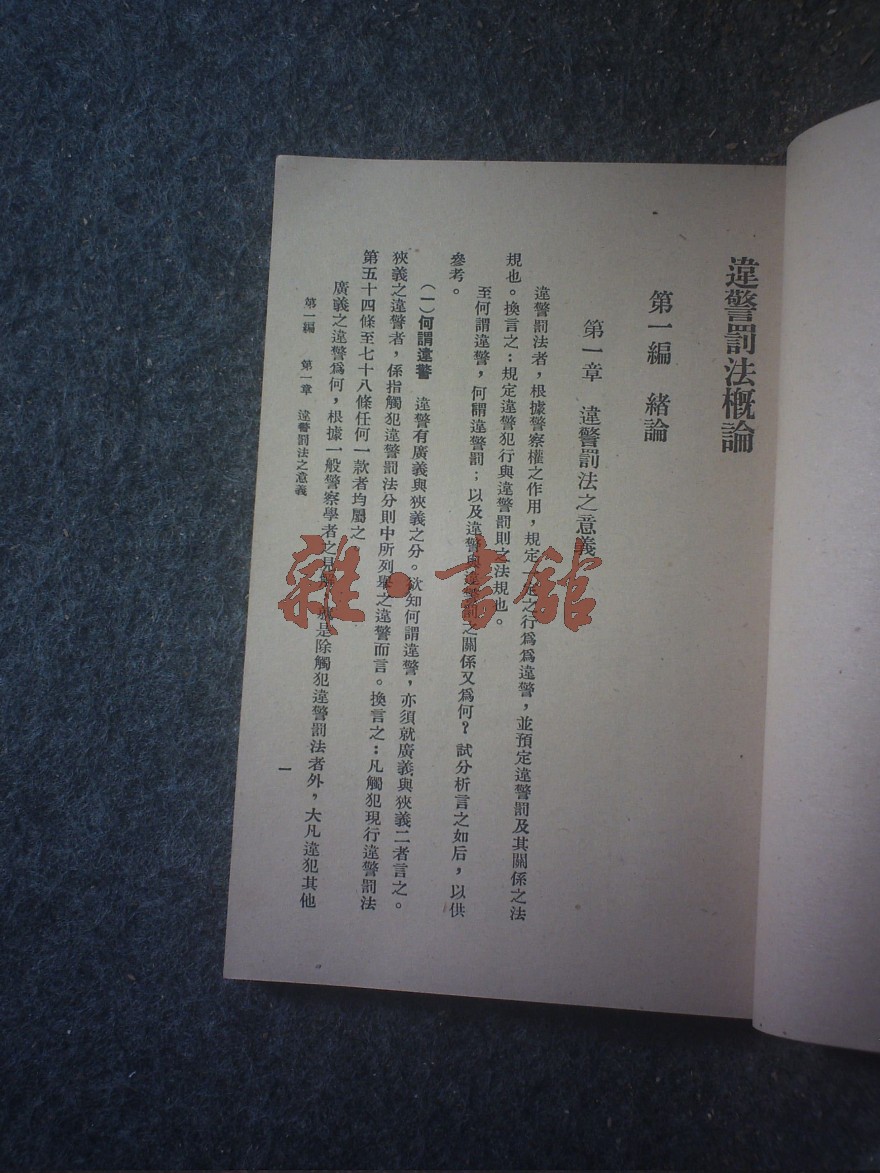 違警罰法概論
第一編　緒論
第一章　違警罰法之意義
違警罰法者，根據警察權之作用，規定一定之行爲爲違警，並預定違警罰及其關係之法
規也。換言之：規定違警犯行與違警罰則之法規也。
至何謂違警，何謂違警罰；以及違警與違警罰之關係又爲何？試分析言之如后，以供
參考。
（一）何謂違警　違警有廣義與狹義之分。欲知何謂違警，亦須就廣義與狹義二者言之。
狹義之違警者，係指觸犯違警罰法分則中所列舉之違警而言。換言之：凡觸犯現行違警罰法
第五十四條至七十八條任何一款者均屬之
廣義之違警爲何，根據一般警察學者之見解　是除觸犯違警罰法者外，大凡違犯其他
第一編　第一章　違警罰法之意義
一
雜·書館